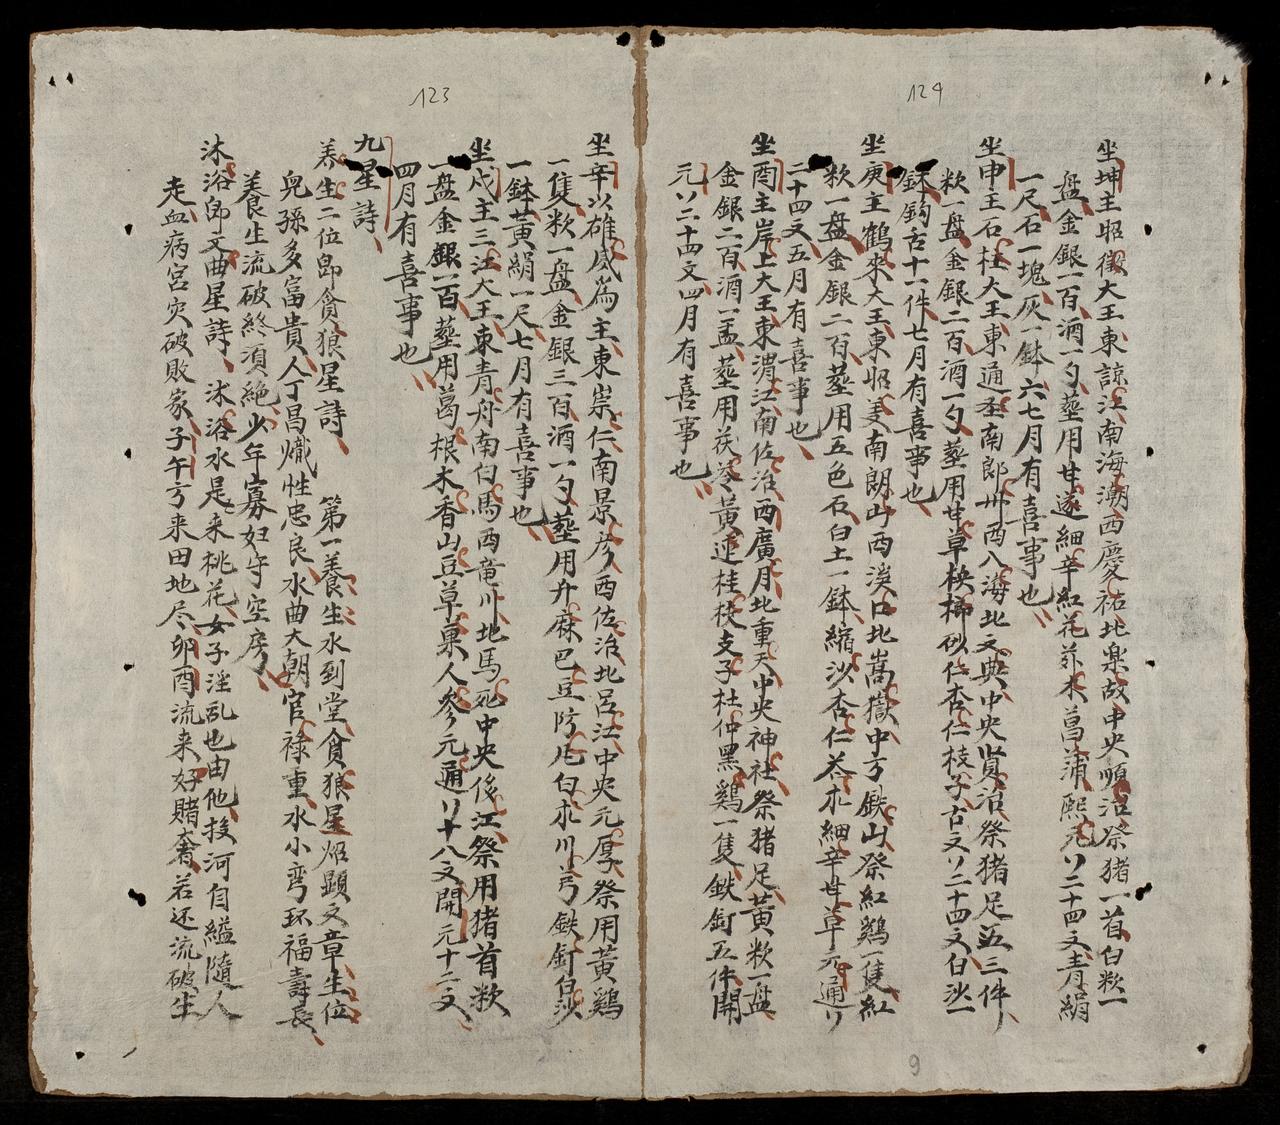 124
坐坤主昭徵大王東諒江南海潮西慶祐北樂故中央順治祭猪一首白粎一
盘金銀一百酒一勺塟用甘遂細辛紅花莪朮菖蒲熙元リ二十四文青絹
一尺石一塊灰一鉢六七月有喜事也
坐申主石柱大王東通圣南郎州西八海北文典中央賢治祭猪足五三件
粎一盘金銀二百酒一勺塟用甘草梹榔砂仁杏仁枝子古文リ二十四文白沙一
鉢鈎舌十一件七月有喜事也
坐庚主鶴來大王東昭美南朗山西渼口北嵩嶽中方鉄山祭紅鷄一隻紅
粎一盘金銀二百塟用五色石白土一鉢縮沙杏仁苍朮細辛甘草元通リ
二十四文五月有喜事也
坐酉主岸上大王東渭江南佐治西廣月北重天中央神社祭猪足黃粎一盘
金銀二百酒一盂塟用茯苓黃連桂枝支子杜仲黑鷄一隻鉄釘五件開
元リ二十四文四月有喜事也
9
123
坐辛以雄威為主東崇仁南景彦西佐治北呂江中央元厚祭用黃鷄
一隻粎一盘金銀三百酒一勺塟用升麻巴豆防凡白朮川芎鉄釘白沙
一鉢黃絹一尺七月有喜事也
坐戌主三江大王東青舟南白馬西竜川北馬死中央後江祭用猪首粎
一盘金銀一百塟用葛根木香山豆草菓人參元通リ十八文開元十二文
四月有喜事也
九星詩
养生二位即貪狼星詩 第一養生水到堂貪狼星炤顕文章生位
兒孫多富貴人丁昌熾性忠良水曲大朝官祿重水小弯环福壽長
養生流破終須絶少年寡妇守空房
沐浴即文曲星詩 沐浴水是来桃花女子淫乱也由他投河自縊隨人
走血病官灾破敗家子午方来田地尽卯酉流来好賭奢若还流破生